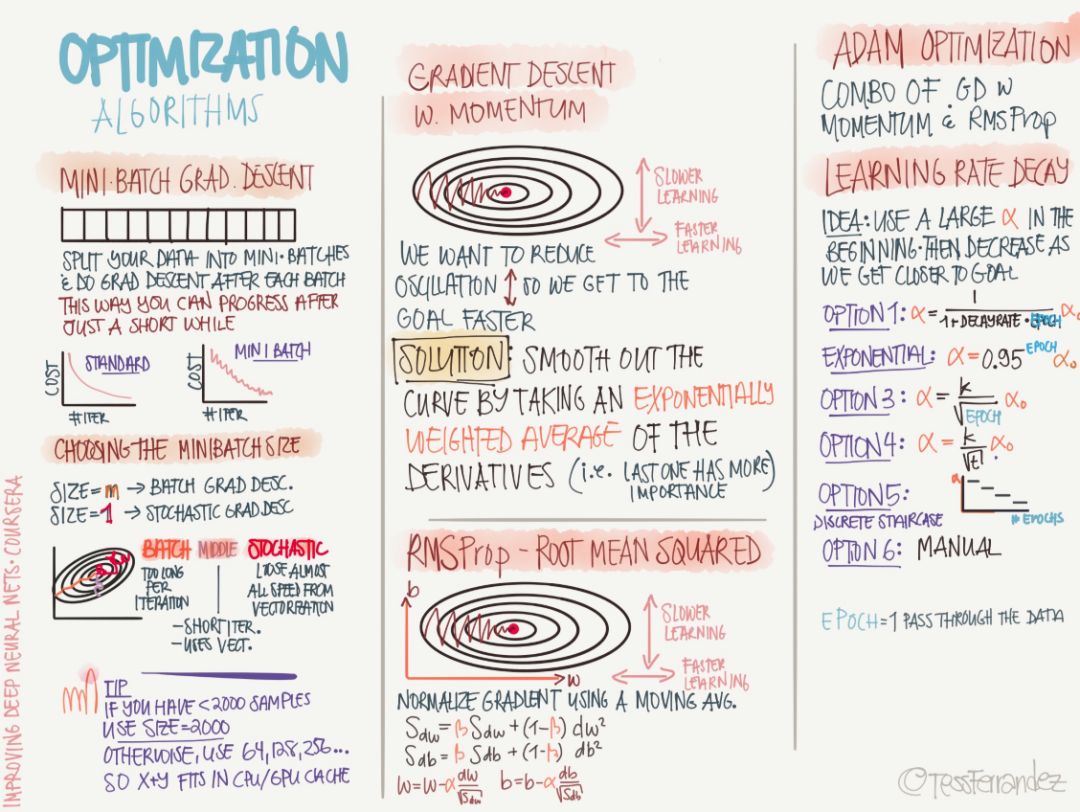 OPTIMIZATION
ALGORITHMS
MINI-BATCH GRAD. DESCENT
SPLIT YOUR DATA INTO MINI-BATCHES
& DO GRAD DESCENT AFTER EACH BATCH
THIS WAY YOU CAN PROGRESS AFTER
JUST A SHORT WHILE
COST
STANDARD
# ITER
COST
MINI BATCH
# ITER
CHOOSING THE MINIBATCH SIZE
SIZE=m → BATCH GRAD DESC.
SIZE=1 → STOCHASTIC GRAD DESC
BATCH MIDDLE STOCHASTIC
TOO LONG
PER
ITERATION
LOSE ALMOST
ALL SPEED FROM
VECTORIZATION
-SHORT ITER.
-USES VECT.
TIP
IF YOU HAVE <2000 SAMPLES
USE SIZE=2000
OTHERWISE, USE 64,128,256...
SO X+Y FITS IN CPU/GPU CACHE
IMPROVING DEEP NEURAL NETS • COURSERA
GRADIENT DESCENT
W. MOMENTUM
SLOWER
LEARNING
FASTER
LEARNING
WE WANT TO REDUCE
OSCILLATION ↕ SO WE GET TO THE
GOAL FASTER
SOLUTION: SMOOTH OUT THE
CURVE BY TAKING AN EXPONENTIALLY
WEIGHTED AVERAGE OF THE
DERIVATIVES (i.e. LAST ONE HAS MORE
IMPORTANCE)
RMSProp - ROOT MEAN SQUARED
b
w
SLOWER
LEARNING
FASTER
LEARNING
NORMALIZE GRADIENT USING A MOVING AVG.
Sdw = β Sdw + (1-β) dw²
Sdb = β Sdb + (1-β) db²
w=w-α dw/√Sdw b=b-α db/√Sdb
ADAM OPTIMIZATION
COMBO OF GD W
MOMENTUM & RMSProp
LEARNING RATE DECAY
IDEA: USE A LARGE α IN THE
BEGINNING. THEN DECREASE AS
WE GET CLOSER TO GOAL
OPTION 1: α = 1/(1+DECAYRATE • EPOCH) α₀
EXPONENTIAL: α = 0.95^EPOCH α₀
OPTION 3: α = k/√EPOCH α₀
OPTION 4: α = k/√t α₀
OPTION 5:
DISCRETE STAIRCASE
α
# EPOCHS
OPTION 6: MANUAL
EPOCH = 1 PASS THROUGH THE DATA
©TessFerrandez